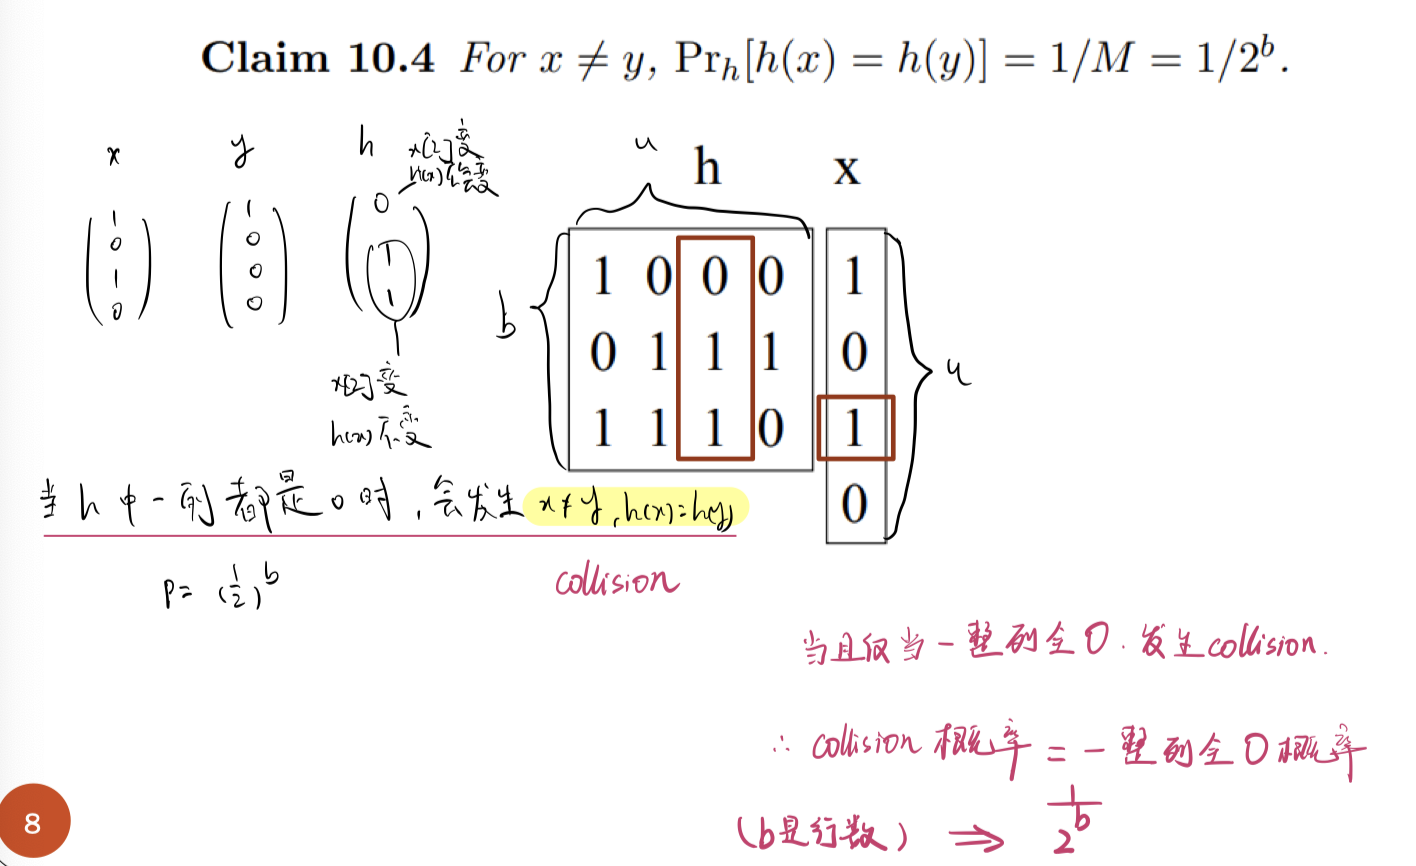 Claim 10.4 For x ≠ y, Pr_h[h(x) = h(y)] = 1/M = 1/2^b.
x y h
x[2]变
h(x)会变
1
0
1
0
1
0
0
0
0
1
1
x[2]变
h(x)不变
u
h x
b
u
1 0 0 0 1
0 1 1 1 0
1 1 1 0 1
0
当h中一列都是0时,会发生 x≠y,h(x)=h(y)
P=(1/2)^b
collision
当且仅当一整列全0.发生collision.
∴ collision概率=一整列全0概率
(b是行数) ⇒ 1/2^b
8